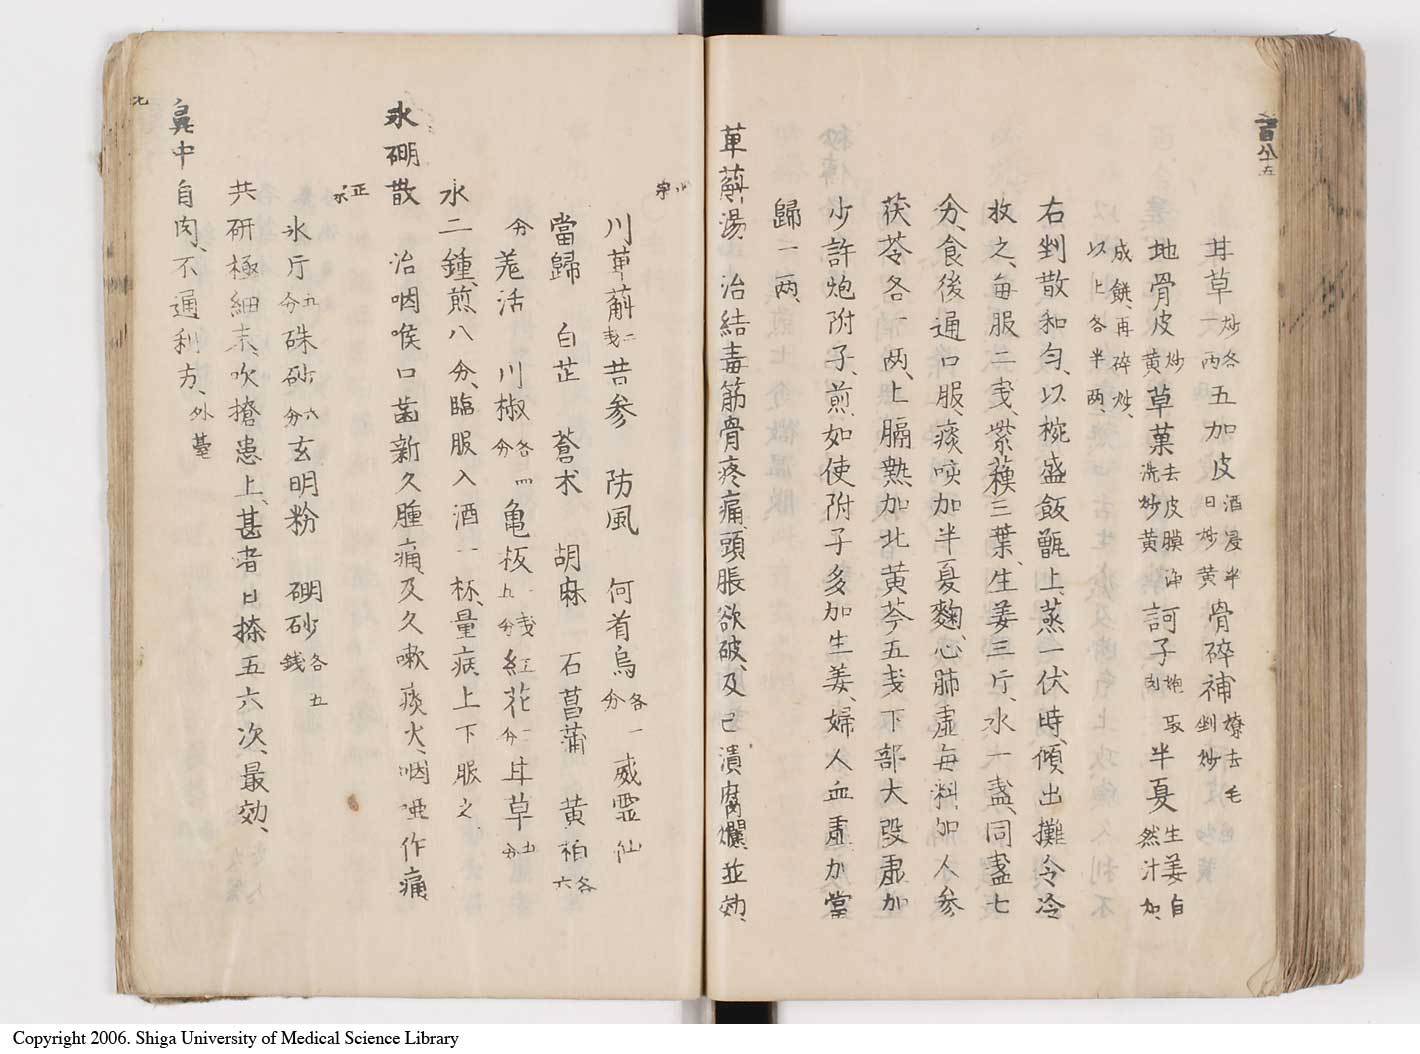 百八五
甘草炒各一両五加皮酒浸半日炒黄骨碎補燎去毛剉炒
地骨皮炒黄草菓去皮膜洗炒黄訶子炮取半夏生姜自然汁加
成餅再碎炒以上各半両
右剉散和匀以椀盛飯甑上蒸一伏時傾出攤令冷
收之每服二戔紫蘓三葉生姜三斤水一盞同盞七
分食後通口服痰咳加半夏麴心肺虚每料加人參
茯苓各一両上膈熱加北黄芩五戔下部大段虚加
少許炮附子煎如使附子多加生姜婦人血虚加當
歸一両
萆薢湯治結毒筋骨疼痛頭脹欲破及已潰腐爛並効
川萆薢二戔苦参 防風 何首烏各一分威霊仙
當歸 白芷 蒼朮 胡麻 石菖蒲 黄柏各六
分羗活 川椒各四分亀板一戔五分紅花三分甘草五分
水二鍾煎八分臨服入酒一杯量病上下服之
氷硼散 治咽喉口歯新久腫痛及久嗽痰火咽唖作痛
正
氷片五分硃砂六分玄明粉 硼砂各五銭
共研極細末吹搽患上甚者日搽五六次最効
鼻中自肉不通利方外薹